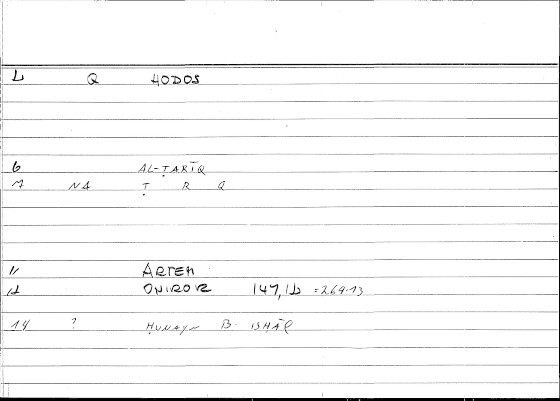 Q HODOS
6 AL-ṬARĪQ
7 NA Ṭ R Q
11 ARTEM
12 ONIROK 147,12 =269.13
14 ? ḤUNAYN B. ISḤĀQ